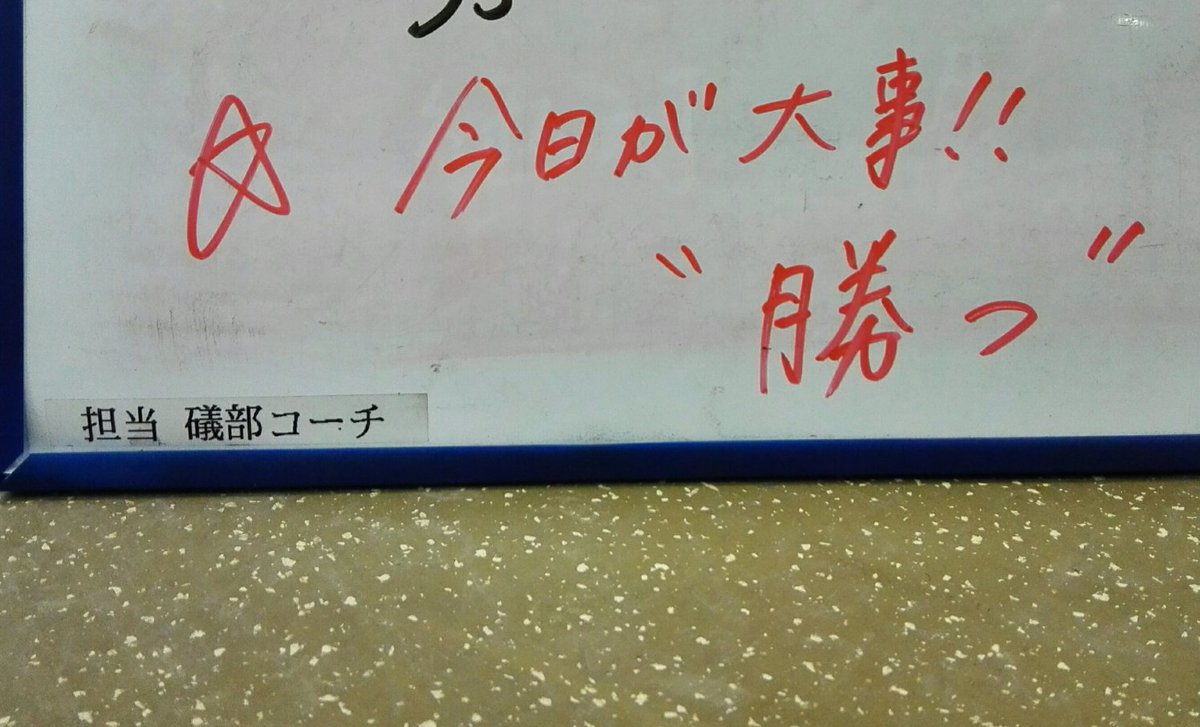 ☆ 今日が大事!!
"勝つ"
担当 礒部コーチ